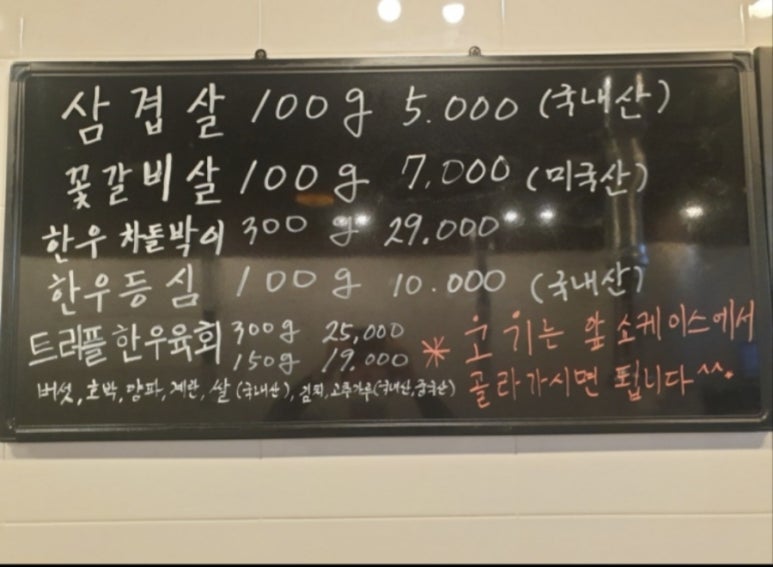 삼겹살 100g 5.000 (국내산)
꽃갈비살 100g 7,000 (미국산)
한우 차돌박이 300g 29.000
한우등심 100g 10.000 (국내산)
트러플한우육회 300g 25,000
150g 19.000
버섯, 호박, 양파, 계란, 쌀 (국내산), 김치, 고추가루(국내산, 중국산)
* 고기는 앞 쇼케이스에서
골라가시면 됩니다^^.